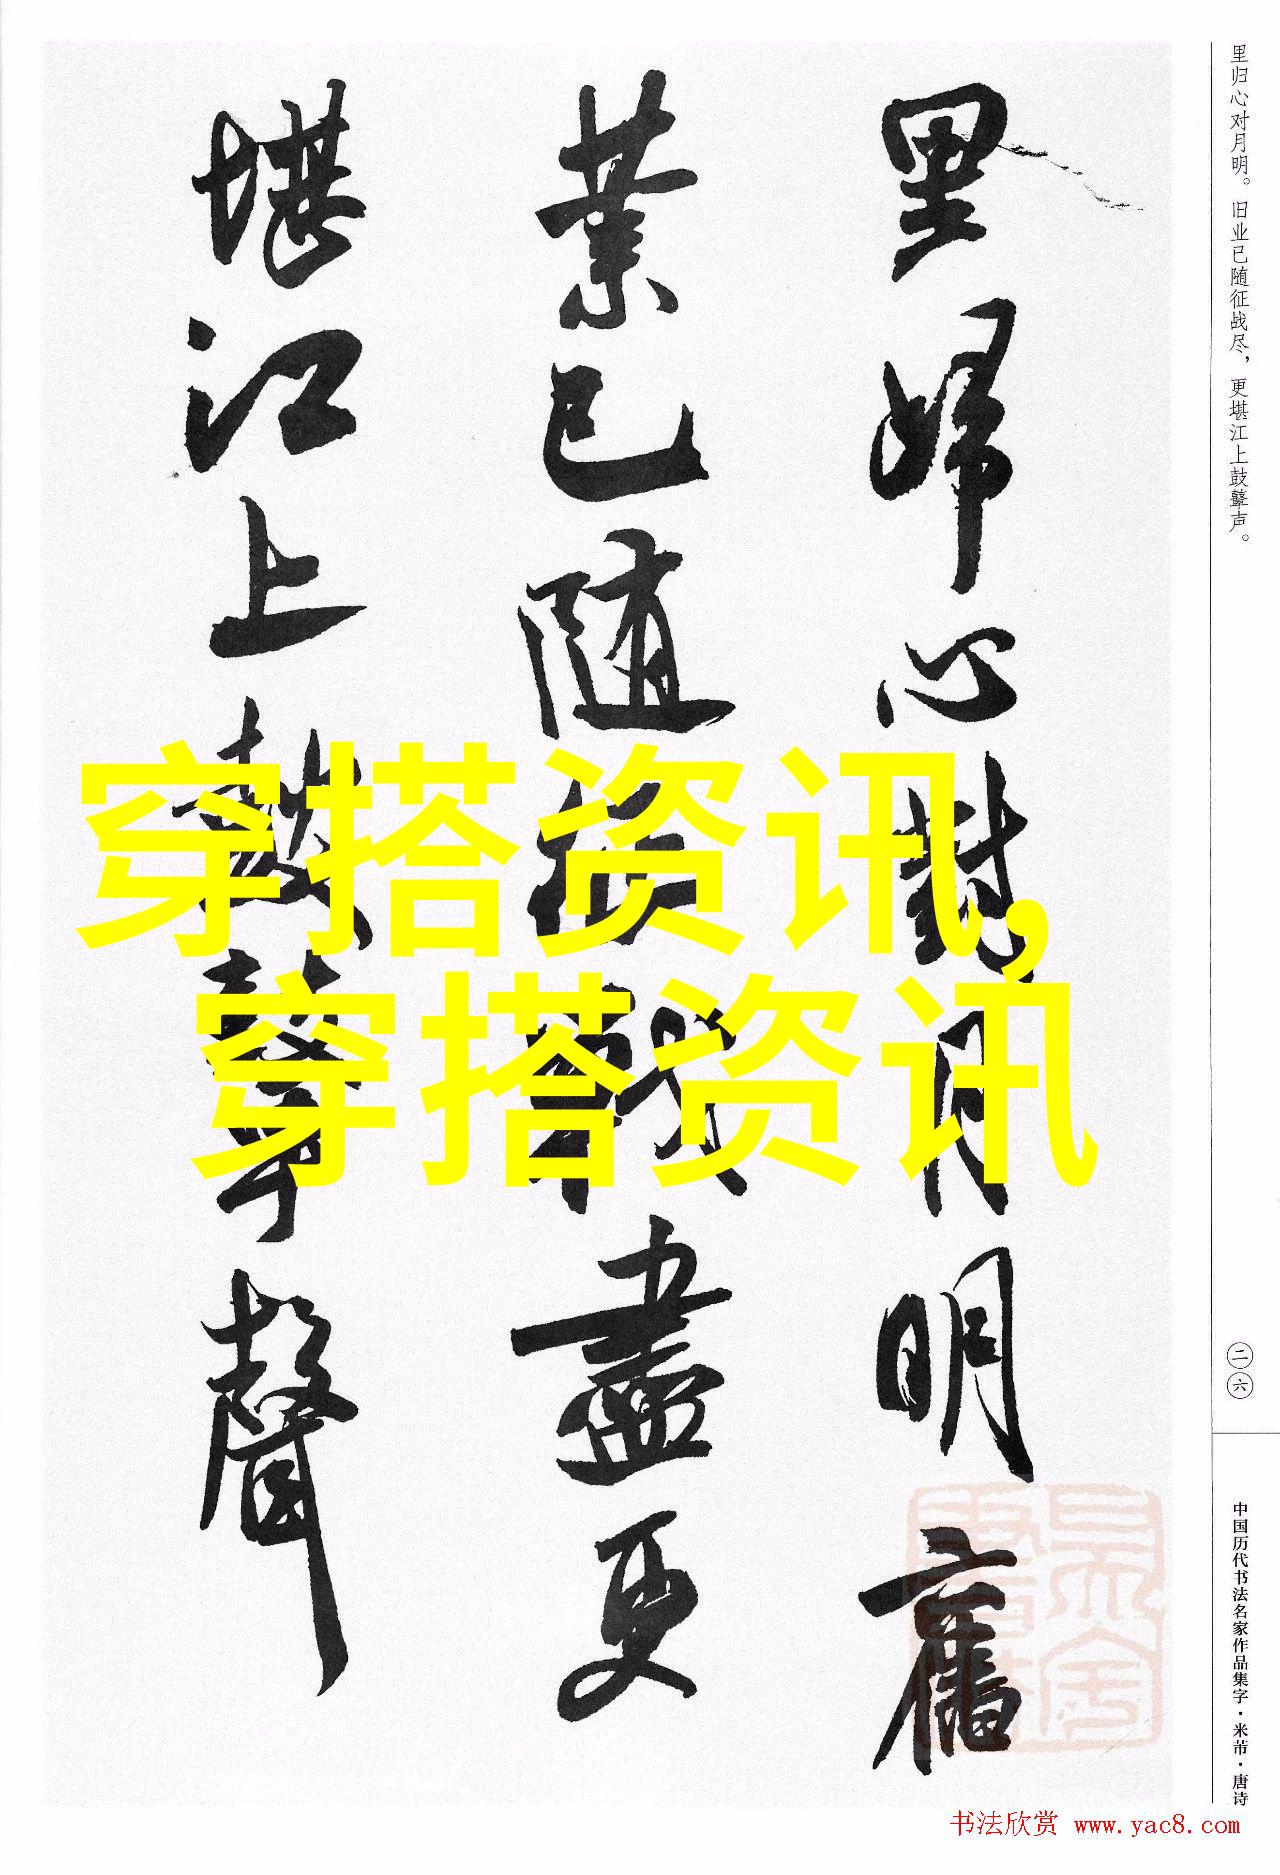 里歸心對月明舊
業已隨征戰盡更
堪江上鼓鼙聲
里归心对月明。旧业已随征战尽，更堪江上鼓鼙声。
二六
中国历代书法名家作品集字·米芾·唐诗
穿搭资讯,
穿搭资讯
书法欣赏 www.yac8.com